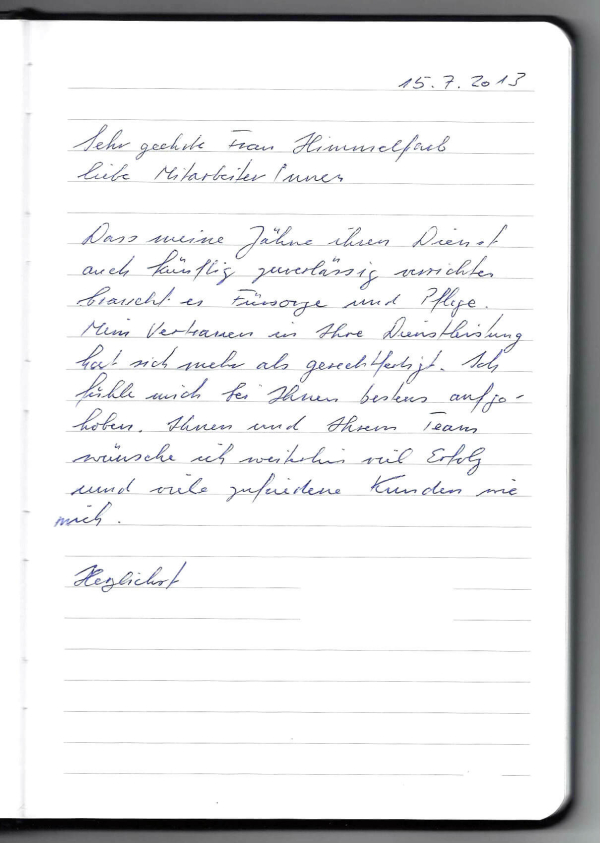 15.7.2013
Sehr geehrte Frau Himmelfarb
liebe Mitarbeiter Innen
Dass meine Zähne ihren Dienst
auch künftig zuverlässig verrichten
braucht es Fürsorge und Pflege.
Mein Vertrauen in Ihre Dienstleistung
hat sich mehr als gerechtfertigt. Ich
fühle mich bei Ihnen bestens aufge-
hoben. Ihnen und Ihrem Team
wünsche ich weiterhin viel Erfolg
und viele zufriedene Kunden wie
mich.
Herzlichst